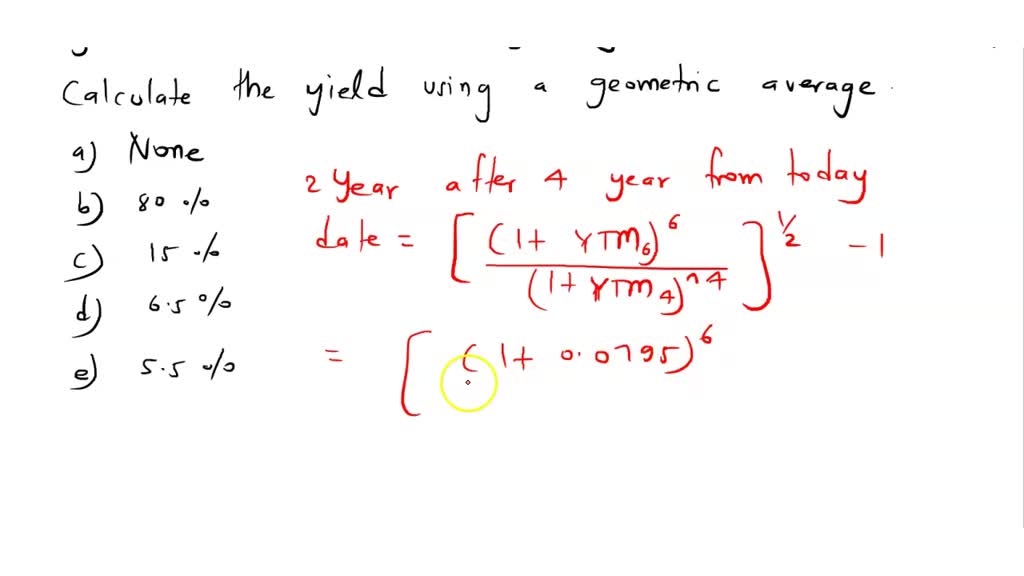 Calculate the yield using a geometric average.
a) None
b) 80 %
c) 15 %
d) 6.5 %
e) 5.5 %
2 Year after 4 year from today
date = [ (1 + YTM₆)⁶ / (1 + YTM₄)^4 ]^1/2 - 1
= [ (1 + 0.0795)⁶